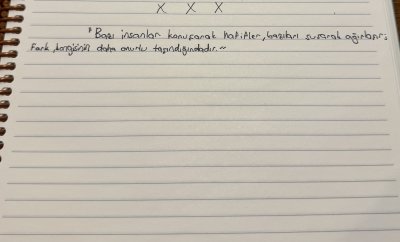 X X X
" Bazı insanlar konuşarak hafifler, bazıları susarak ağırlaşır;
Fark, hangisinin daha onurlu taşındığındadır. ~